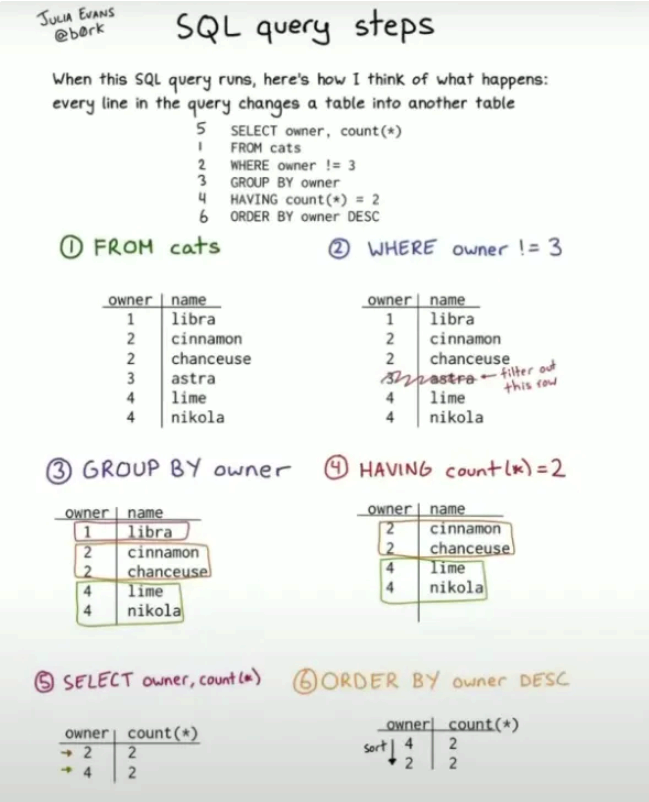 JULIA EVANS
@børk
SQL query steps
When this SQL query runs, here's how I think of what happens:
every line in the query changes a table into another table
5 SELECT owner, count(*)
1 FROM cats
2 WHERE owner != 3
3 GROUP BY owner
4 HAVING count(*) = 2
6 ORDER BY owner DESC
① FROM cats
owner name
1 libra
2 cinnamon
2 chanceuse
3 astra
4 lime
4 nikola
② WHERE owner != 3
owner name
1 libra
2 cinnamon
2 chanceuse
3 astra ← filter out
this row
4 lime
4 nikola
③ GROUP BY owner
owner name
1 libra
2 cinnamon
2 chanceuse
4 lime
4 nikola
④ HAVING count(*)=2
owner name
2 cinnamon
2 chanceuse
4 lime
4 nikola
⑤ SELECT owner, count(*)
owner count(*)
→ 2 2
→ 4 2
⑥ ORDER BY owner DESC
owner count(*)
sort ↓ 4 2
2 2